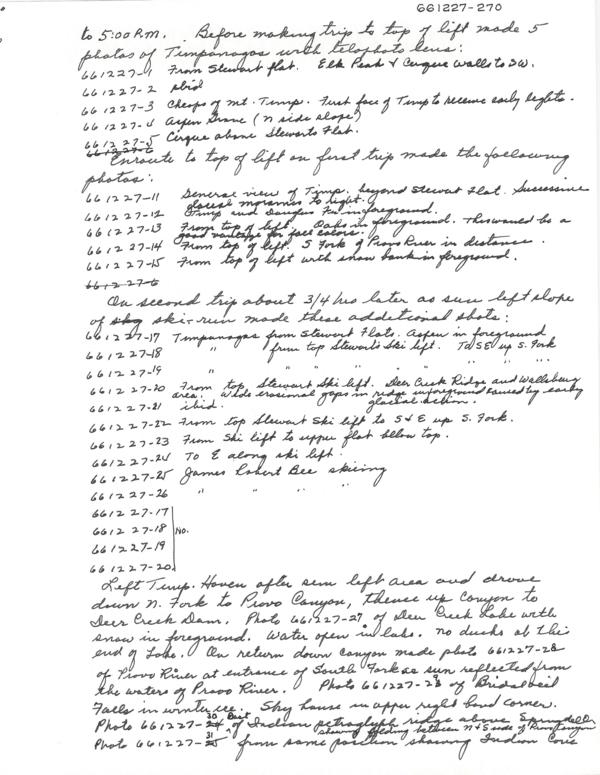 661227-270
to 5:00 P.M. Before making trip to top of lift made 5
photos of Timpanogos with telephoto lens:
661227-1 From Stewart flat. Elk Peak & Cirque walls to SW.
661227-2 ibid
661227-3 Cheops of Mt. Timp. First face of Timp to receive early lights.
661227-4 Aspen Grove (N side slope)
661227-5 Cirque above Stewarts Flat.
661227-6
Enroute to top of lift on first trip made the following
photos:
661227-11 General view of Timp. beyond Stewart Flat. Successive
glacial moraines to right.
661227-12 Timp and Douglas Fir in foreground.
661227-13 From top of left. Oaks in foreground. This would be a
good vantage for fall colors.
661227-14 From top of left. S Fork of Provo River in distance.
661227-15 From top of left with snow bank in foreground.
661227-6
On second trip about 3/4 hrs later as sun left slope
of sky ski-run made these additional shots:
661227-17 Timpanogos from Stewart Flats. Aspen in foreground
661227-18 " from top Stewart's Ski lift. To SE up S. Fork
661227-19 " " " " " " " "
661227-20 From top Stewart Ski left. Deer Creek Ridge and Wallsburg
area. Wide erosional gaps in ridge in foreground caused by early
glacial action.
661227-21 ibid.
661227-22 From top Stewart Ski lift to S & E up S. Fork.
661227-23 From Ski lift to upper flat below top.
661227-24 To E along ski left.
661227-25 James Robert Bee skiing
661227-26 " " " "
661227-17
661227-18 No.
661227-19
661227-20
Left Timp. Haven after sun left area and drove
down N. Fork to Provo Canyon, thence up canyon to
Deer Creek Dam. Photo 661227-27 of Deer Creek Lake with
snow in foreground. Water open in lake. No ducks at this
end of Lake. On return down canyon made photo 661227-28
of Provo River at entrance of South Fork as sun reflected from
the waters of Provo River. Photo 661227-29 of Bridalveil
Falls in winter ice. Sky house in upper right hand corner.
Photo 661227-30 of Indian petroglyph ridge above Springdell
showing bedding between N & S side of Provo Canyon
Photo 661227-31 from same position showing Indian Cove